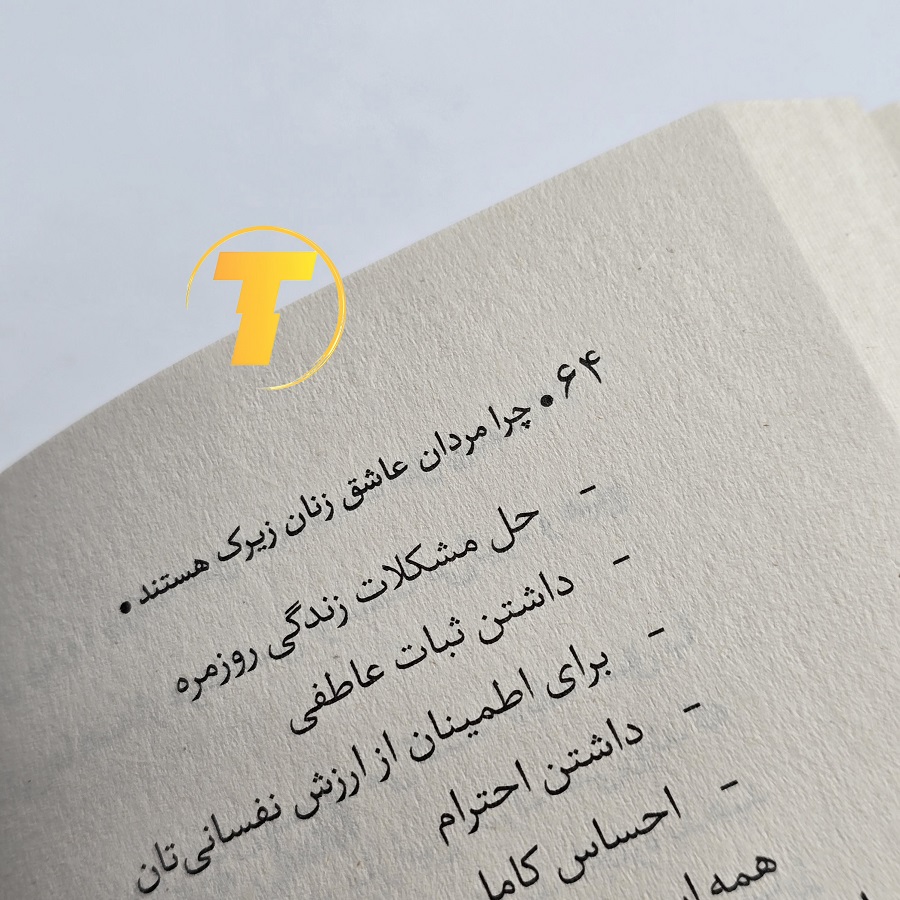 T
۶۴ • چرا مردان عاشق زنان زیرک هستند •
- حل مشکلات زندگی روزمره
- داشتن ثبات عاطفی
- برای اطمینان از ارزش نفسانی‌تان
- داشتن احترام
- احساس کامل
همه